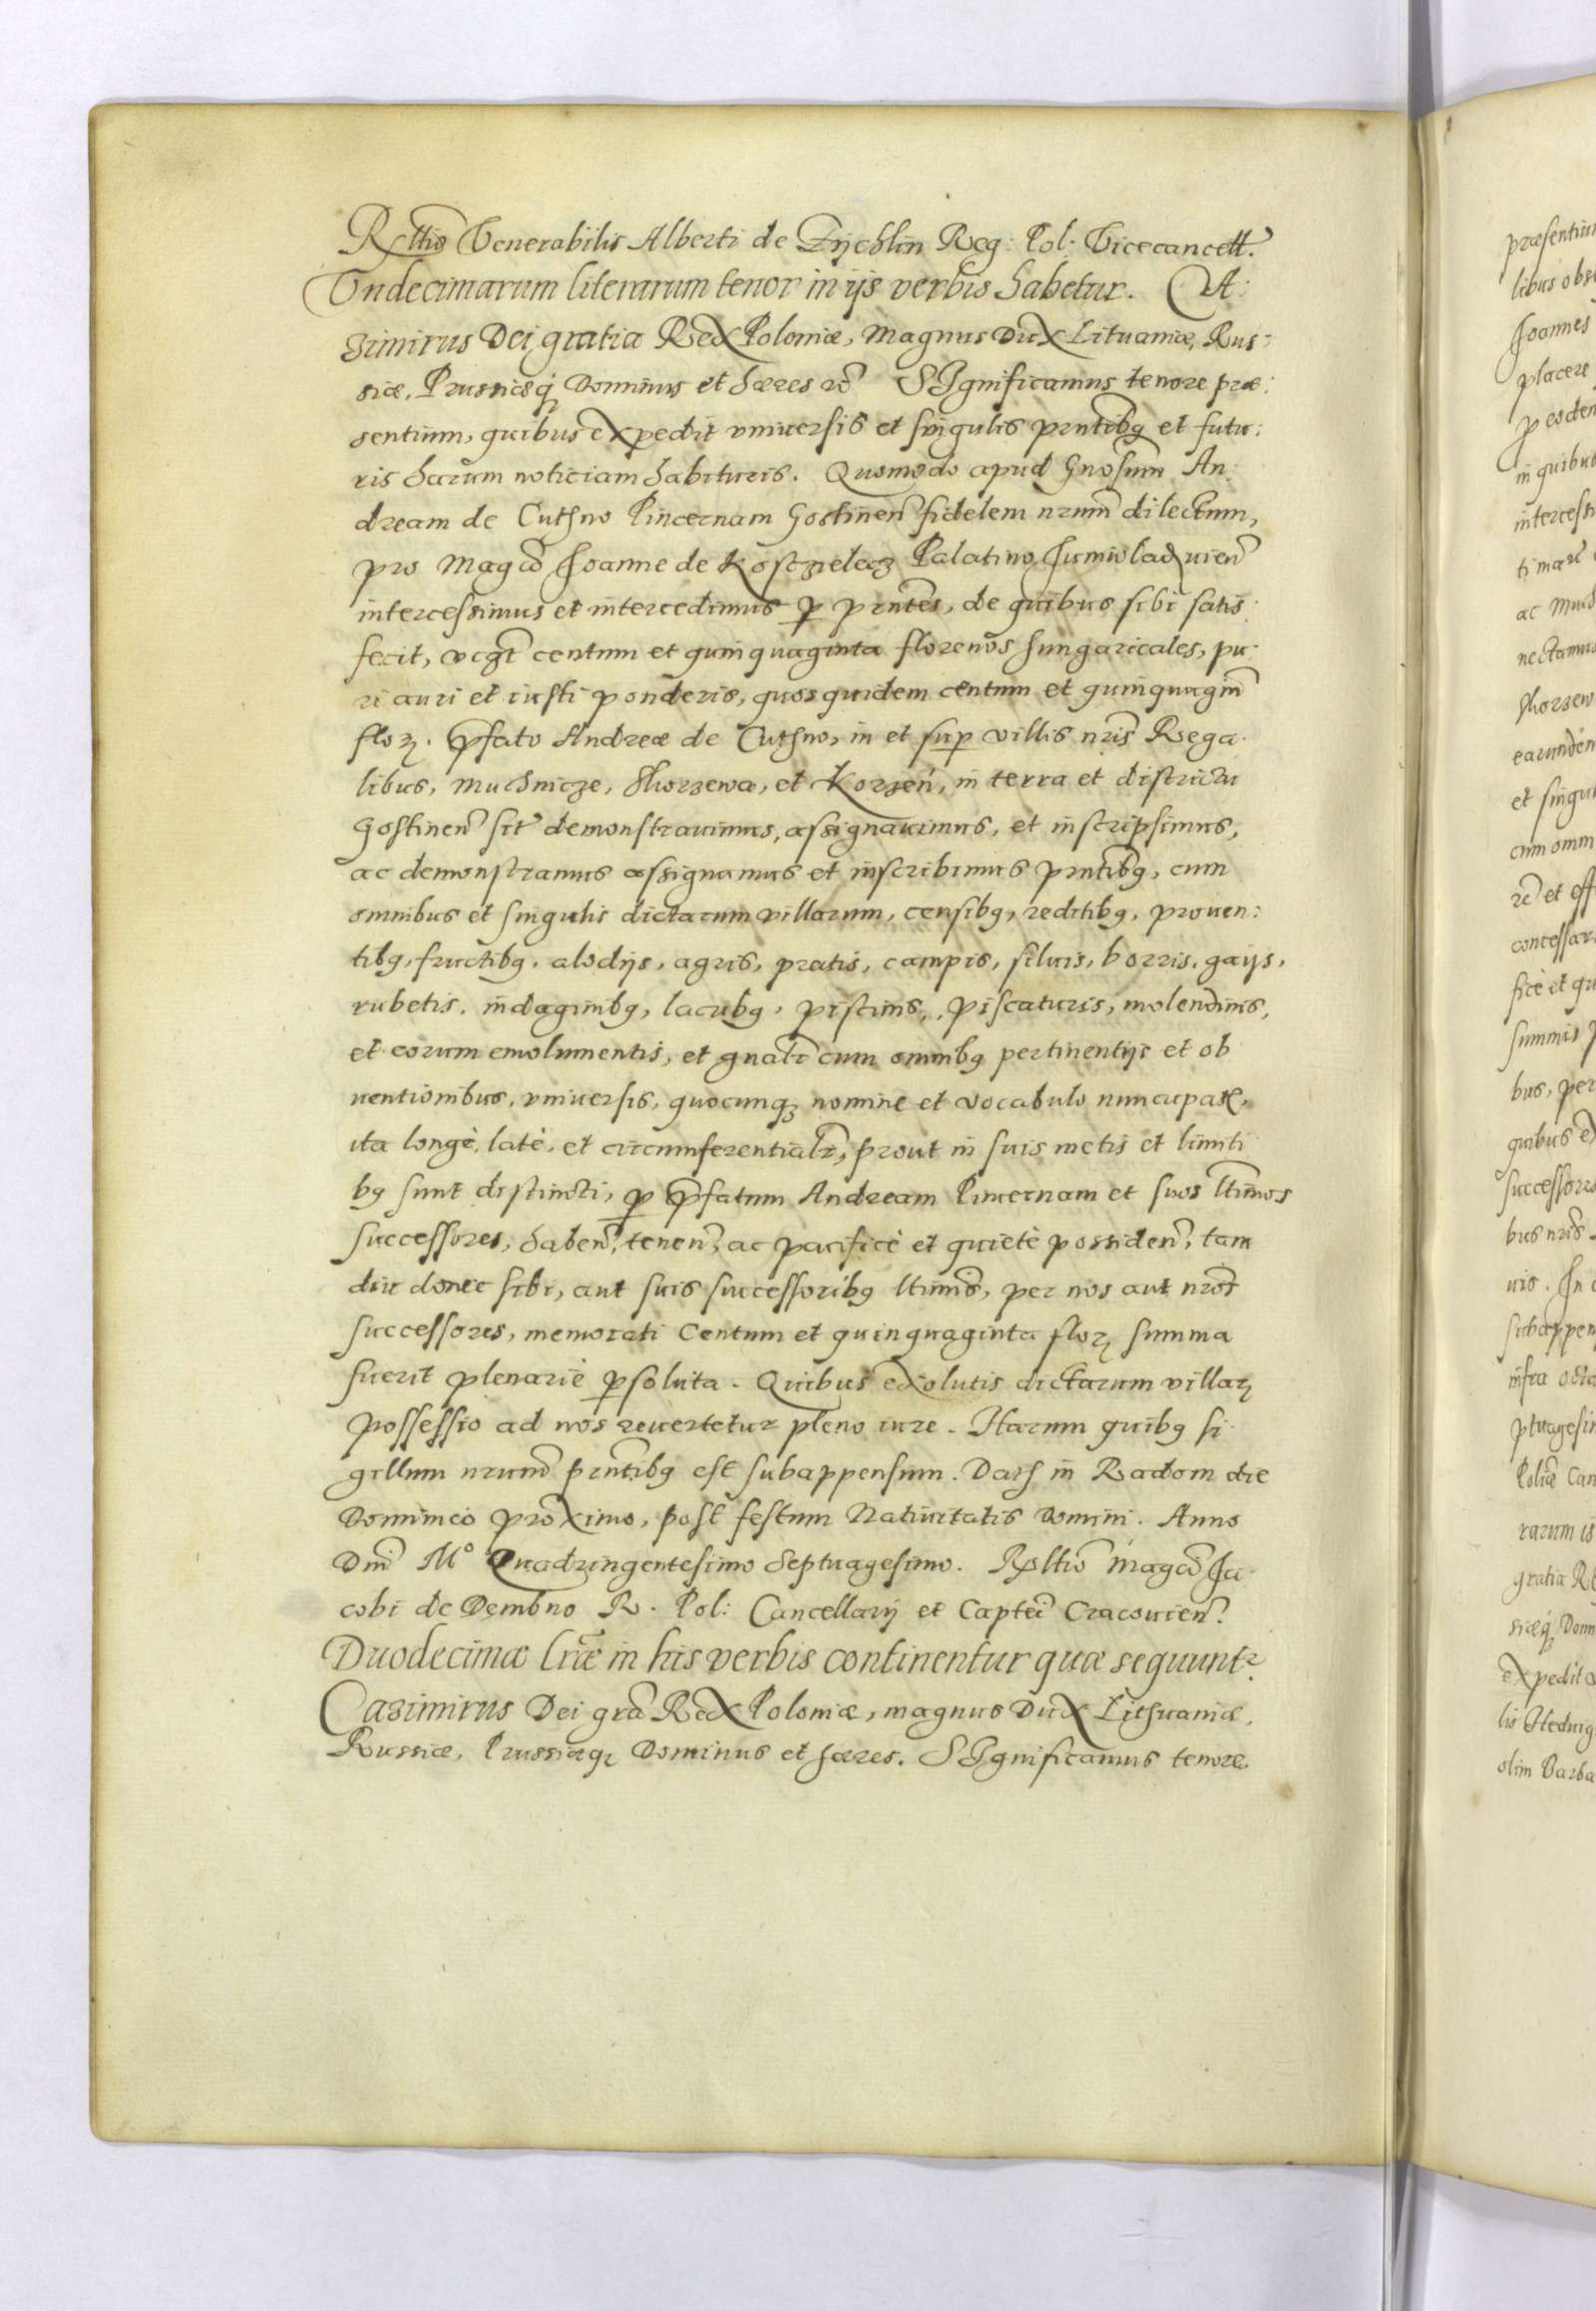 Rltio Venerabilis Alberti de Zijchlin Reg: Pol: Vicecancell.
Undecimarum literarum tenor in ijs verbis habetur. Ca:
zimirus Dei gratia Rex Poloniæ, Magnus Dux Lituaniæ, Rus:
siæ, Prussiæq Dominus et hæres rc̃ SIgnificamus tenore præ:
sentium, quibus expedit vniuersis et singulis pñtibq et futu:
ris harum noticiam habituris. Quomodo apud Gnosum An:
dream de Cuthno Pincernam Gostineñ fidelem nrum̃ dilectum,
pro Magco Joanne de Kosczielecz Palatino Juniwladxuieñ
intercessimus et intercedimus p pñtes, de quibus sibi satis:
fecit, vcqt centum et quinquaginta florenos hungaricales, pu:
ri auri et iusti ponderis, quos quidem centum et quinquagiñ
floꝝ. pfato Andreæ de Cuthno, in et sup villis nris Rega:
libus, Muchnicze, Skorzewa, et Korzeń, in terra et districtu
Gostineñ sit̃ demonstrauimus, assignauimus, et inscripsimus,
ac demonstramus assignamus et inscribimus pñtibq, cum
omnibus et singulis dictarum villarum, censibq, reditibq, prouen:
tibq, fructibq, alodijs, agris, pratis, campis, siluis, borris, gaijs,
rubetis, indaginibq, lacubq, piscinis, piscaturis, molendinis,
et eorum emolumentis, et gnalr̃ cum omnibq pertinentijs et ob
uentionibus, vniuersis, quocunqꝫ nomine et vocabulo nuncupaꝶ,
ita longè, latè, et circumferentialr̃, prout in suis metis et limiti
bq sunt distincti, p pfatum Andream Pincernam et suos ltimos
successores, habeñ, teneñ, ac pacificè et quietè possideñ, tam
diu donec sibi, aut suis successoribq ltimis, per nos aut nros
successores, memorati Centum et quinquaginta floꝝ summa
fuerit plenariè psoluta. Quibus exolutis dictarum villaꝝ
possessio ad nos reuertetur pleno iure. Harum quibq si
gillum nrum̃ pñtibq est subappensum. Dats in Radom die
Dominico proximo, post festum Natiuitatis Domini. Anno
Dni M° Quadringentesimo Septuagesimo. Rltio Magci Ja
cobi de Dembno R. Pol: Cancellarij et Captei Cracouieñ.
Duodecimæ lræ in his verbis continentur quæ sequuntr.
Cazimirus Dei grã Rex Poloniæ, magnus Dux Lithuaniæ,
Russiæ, Prussiæq Dominus et hæres. SIgnificamus tenore

præsentiu
libus obs
Joannes
placere
p eosdem
in quibus
intercessi
ac Much
nectamus
Skorzew
earundem
et singul
cum omni
rc̃ et eff
concessar
ficè et qu
summis p
bus, per
quibus ex
successores
bus nris
uis. In c
subappen
infra octa
ptuagesim
Polniæ Can
rarum is
gratia Re
siæq Domi
expedit v
lis Hedwig
olim Barba